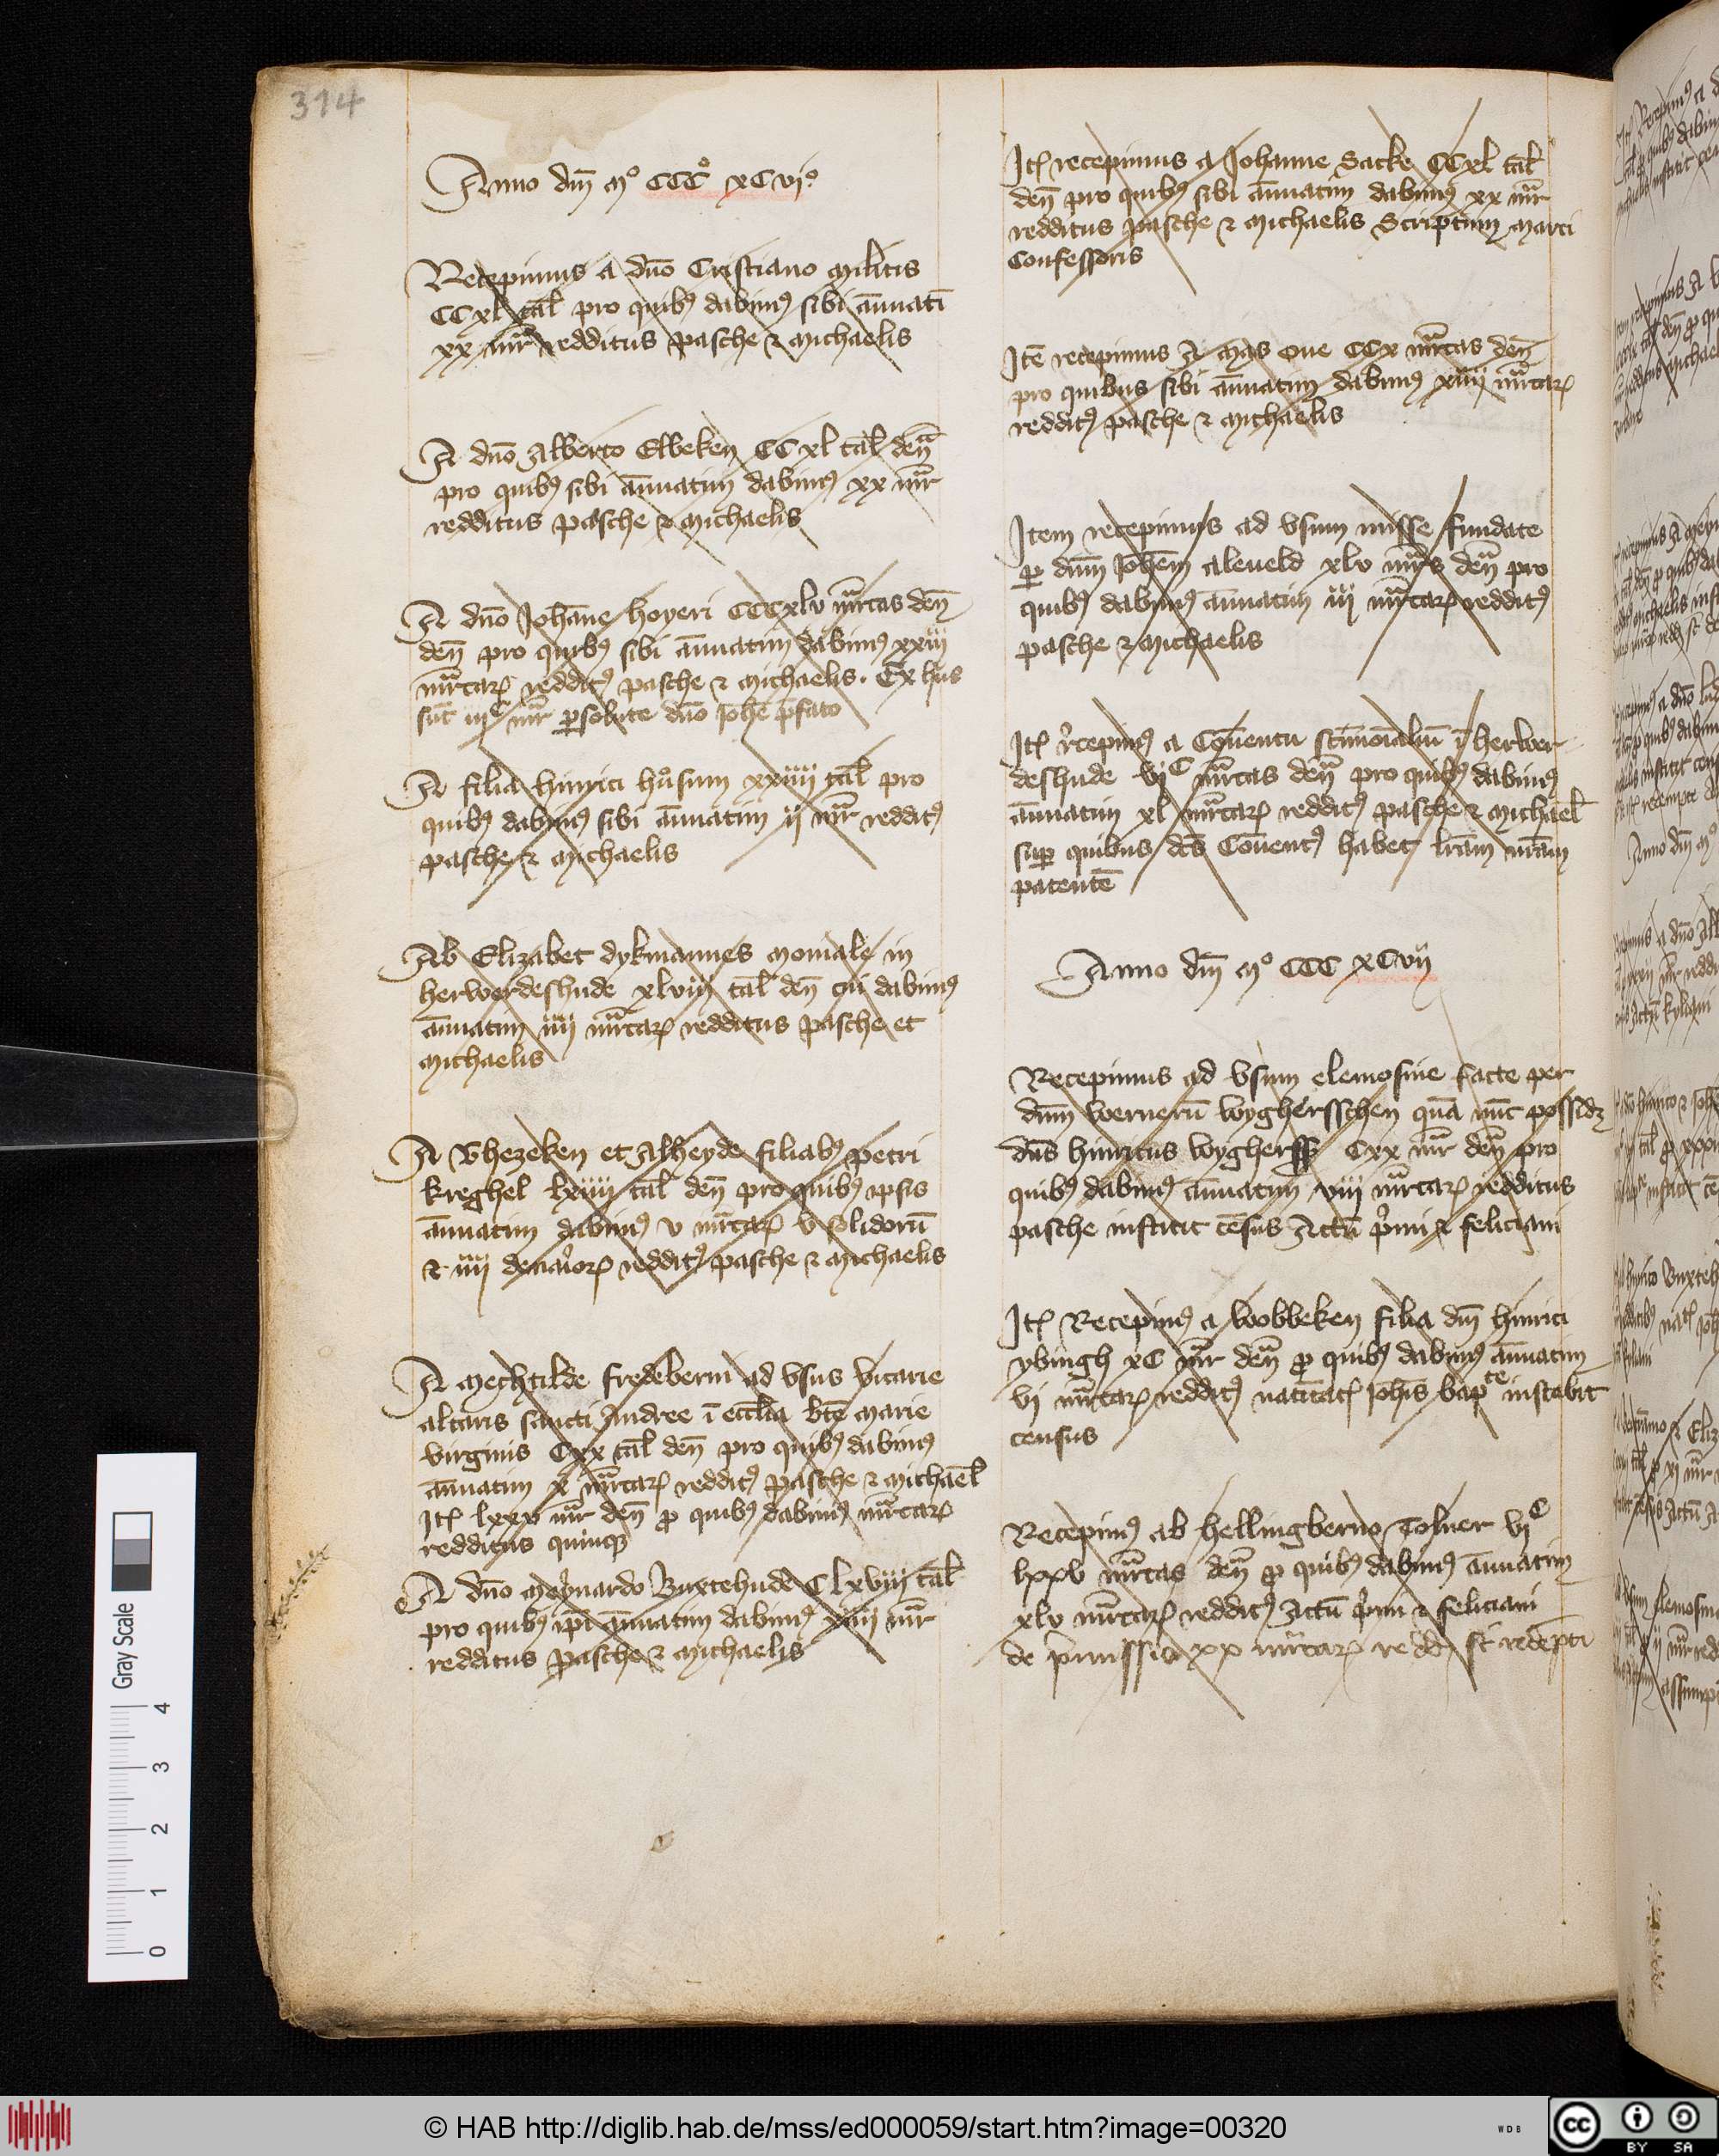 314
Anno dm̄ mº CCCº xCviº
Recepimus a dn̄o Cristiano militis
CCxl tal̄ pro quibꝰ dabimꝰ sibi ān̄uatī
xx mr̄ redditus pasche ⁊ michaelis
A dn̄o Alberto Elbeken CCxl tal̄ den̄
pro quibꝰ sibi ān̄uatim dabimꝰ xx mr̄
redditus pasche ⁊ michaelis
A dn̄o Johān̄e hoyeri CCCxlv mr̄cas den̄
den̄ pro quibꝰ sibi ān̄uatim dabimꝰ xxiij
mr̄carꝝ redditꝰ pasche ⁊ michaelis. Ex hiis
sūt iijᶜ mr̄ ꝑsolute dn̄o Joh̄e p̄fato
A filia hinrici hůsum xxiiij tal̄ pro
quibꝰ dabimꝰ sibi ān̄uatim ij mr̄ redditꝰ
pasche ⁊ michaelis
Ab Elizabet dykmannes moniale in
herwerdeshude xlviij tal̄ den̄ cui dabimꝰ
ān̄uatim iiij mr̄carꝝ redditus pasche et
michaelis
A Ghezeken et Alheyde filiabꝰ petri
kreghel lxiiij tal̄ den̄ pro quibꝰ ipsis
ān̄uatim dabimꝰ v mr̄carꝝ v solidorū
⁊ iiij denariorꝝ redditꝰ pasche ⁊ michaelis
A mechtilde fredeberni ad vsus vicarie
altaris sancti Andree ī eccl̄ia bt̄e marie
virginis Cxx tal̄ den̄ pro quibꝰ dabimꝰ
ān̄uatim x mr̄carꝝ redditꝰ pasche ⁊ michael̄
Itꝫ lxxv mr̄ den̄ ꝓ quibꝰ dabimꝰ mr̄carꝝ
redditus quinqꝫ
A dn̄o meynardo Buxtehude Clxviij tal̄
pro quibꝰ ip̄i ān̄uatim dabimꝰ xiiij mr̄
redditus pasche ⁊ michaelis
Itꝫ recepimus a Johanne Sacke CCxl tal̄
den̄ pro quibꝰ sibi ān̄uatim dabimꝰ xx mr̄
redditus pasche ⁊ michaelis Scriptum marci
Confessoris
Itē recepimus A mas one CCx mr̄cas den̄
pro quibus sibi ān̄uatim dabimus xiiij mr̄carꝝ
redditꝰ pasche ⁊ michaelis
Item recepimus ad vsum misse fundate
ꝑ dnm̄ Joh̄em aleueld xlv mr̄cs den̄ pro
quibꝰ dabimꝰ ān̄uatim iij mr̄carꝝ redditꝰ
pasche ⁊ michaelis
Itꝫ recepimꝰ a Cōuentu sc̄timoīaliū ī herwer
deshude viᶜ mr̄cas den̄ pro quibꝰ dabimꝰ
ān̄uatim xl mr̄carꝝ redditꝰ pasche ⁊ michael̄
suꝑ quibus dc̄s Cōuentꝰ habet lr̄am nr̄am
patentē
Anno dm̄ mº CCC xCvij
Recepimus ad vsum elemosine facte per
dnm̄ wernerū wyghersschen quā nūc possidꝫ
dn̄s hinricus wygherss Cxx mr̄ den̄ pro
quibꝰ dabimꝰ ān̄uatim viij mr̄carꝝ redditus
pasche institit cēsus Actū p̓mi ⁊ feliciani
Itꝫ Recepimꝰ a wobbeken filia dn̄i hinrici
ybingh xC mr̄ den̄ ꝓ quibꝰ dabimꝰ ān̄uatim
vi mr̄carꝝ redditꝰ natītatꝫ Joh̄is bapᵗᵉ instabit
census
Recepimꝰ ab hellingberno Tolner viᶜ
lxxv mr̄cas den̄ ꝓ quibꝰ dabimꝰ ān̄uatim
xlv mr̄carꝝ redditꝰ Actū p̓mi ⁊ feliciani
de p̄missis xx mr̄carꝝ redd̄ st̄ redēpti
Gray Scale
4
3
2
1
0
© HAB http://diglib.hab.de/mss/ed000059/start.htm?image=00320
WDB
cc
BY SA